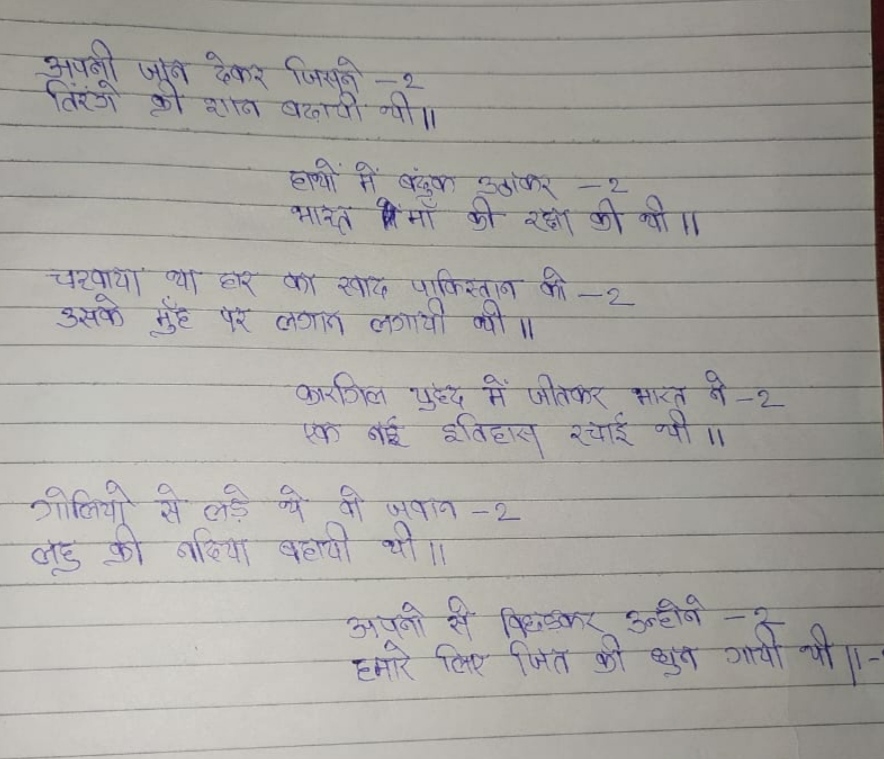 अपनी जान देकर जिसने -2
तिरंगे की शान बढायी थी॥
हाथों में बंदुक उठाकर -2
भारत माँ की रक्षा की थी॥
चखाया था हार का स्वाद पाकिस्तान को -2
उसके मुँह पर लगाम लगायी थी॥
कारगिल युद्ध में जीतकर भारत ने -2
एक नई इतिहास रचाई थी॥
गोलियो से लड़े थे वो जवान -2
लहु की नदिया बहायी थी॥
अपनो से बिछडकर उन्होने -2
हमारे लिए जित की धुन गायी थी॥-